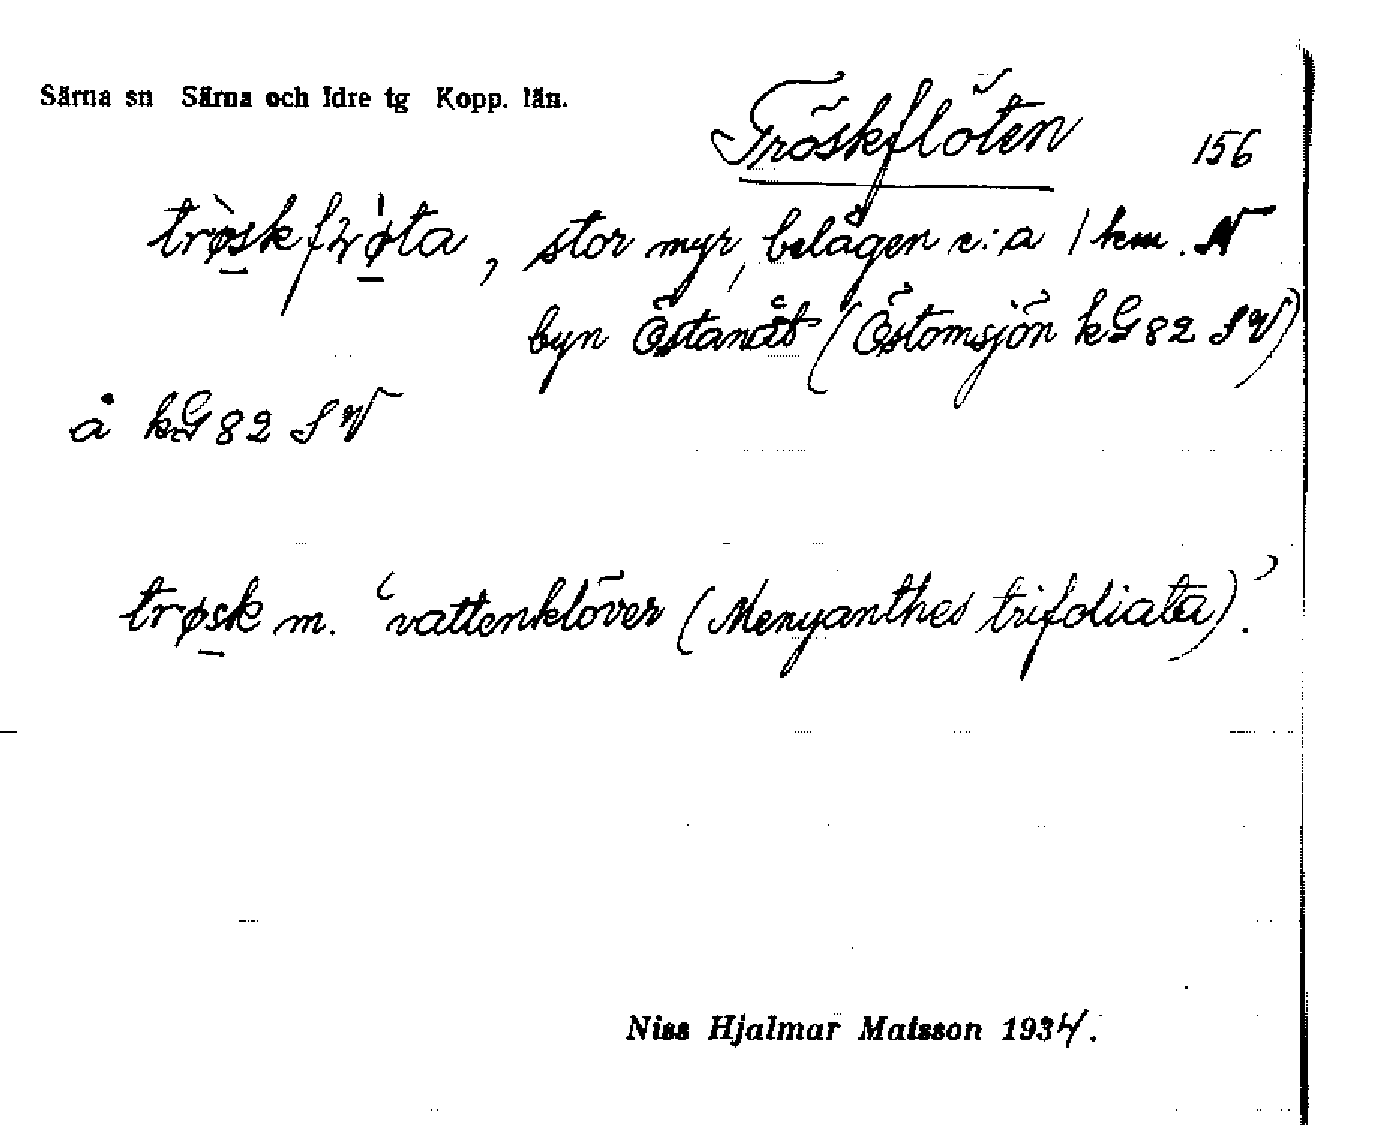 Särna sn Särna och Idre tg Kopp. län.
Tröskflöten 156
trø̀skfɽø̀ta, stor myr, belägen c:a 1 km. N
byn Östanåt (Östomsjön kG82 SV)
å kG82 SV
trøsk m. ‘vattenklöver (Menyanthes trifoliata)’.
Niss Hjalmar Matsson 1934.